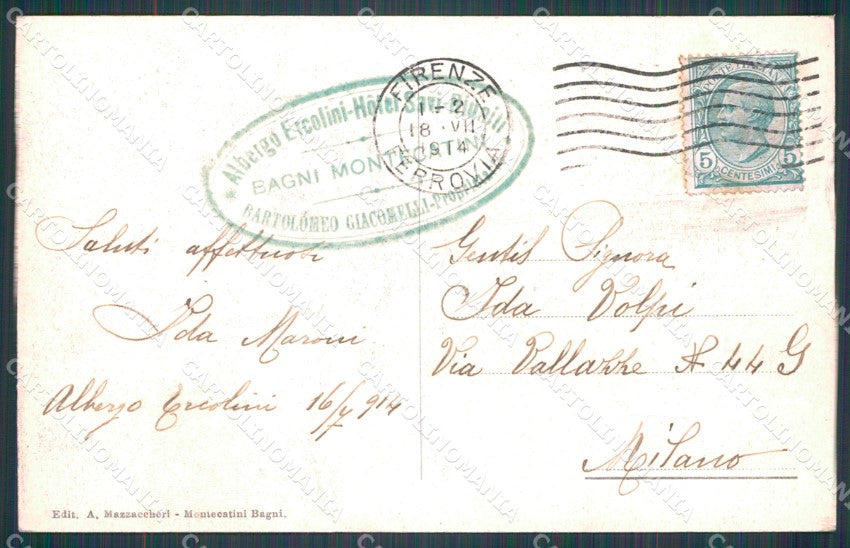 Albergo Ercolini-Hôtel Savi-Pioppi
BAGNI MONTECATINI
BARTOLOMEO GIACOMELLI-Propr.
FIRENZE
1-2
18 VII
1914
FERROVIA
POSTE ITALIANE
5 5
CENTESIMI
Saluti affettuosi
Ida Maroni
Albergo Ercolini 16/7 914
Gentil Signora
Ida Volpi
Via Vallazze N 44 G
Milano
Edit. A. Mazzaccheri - Montecatini Bagni.
CARTOLINOMANIA